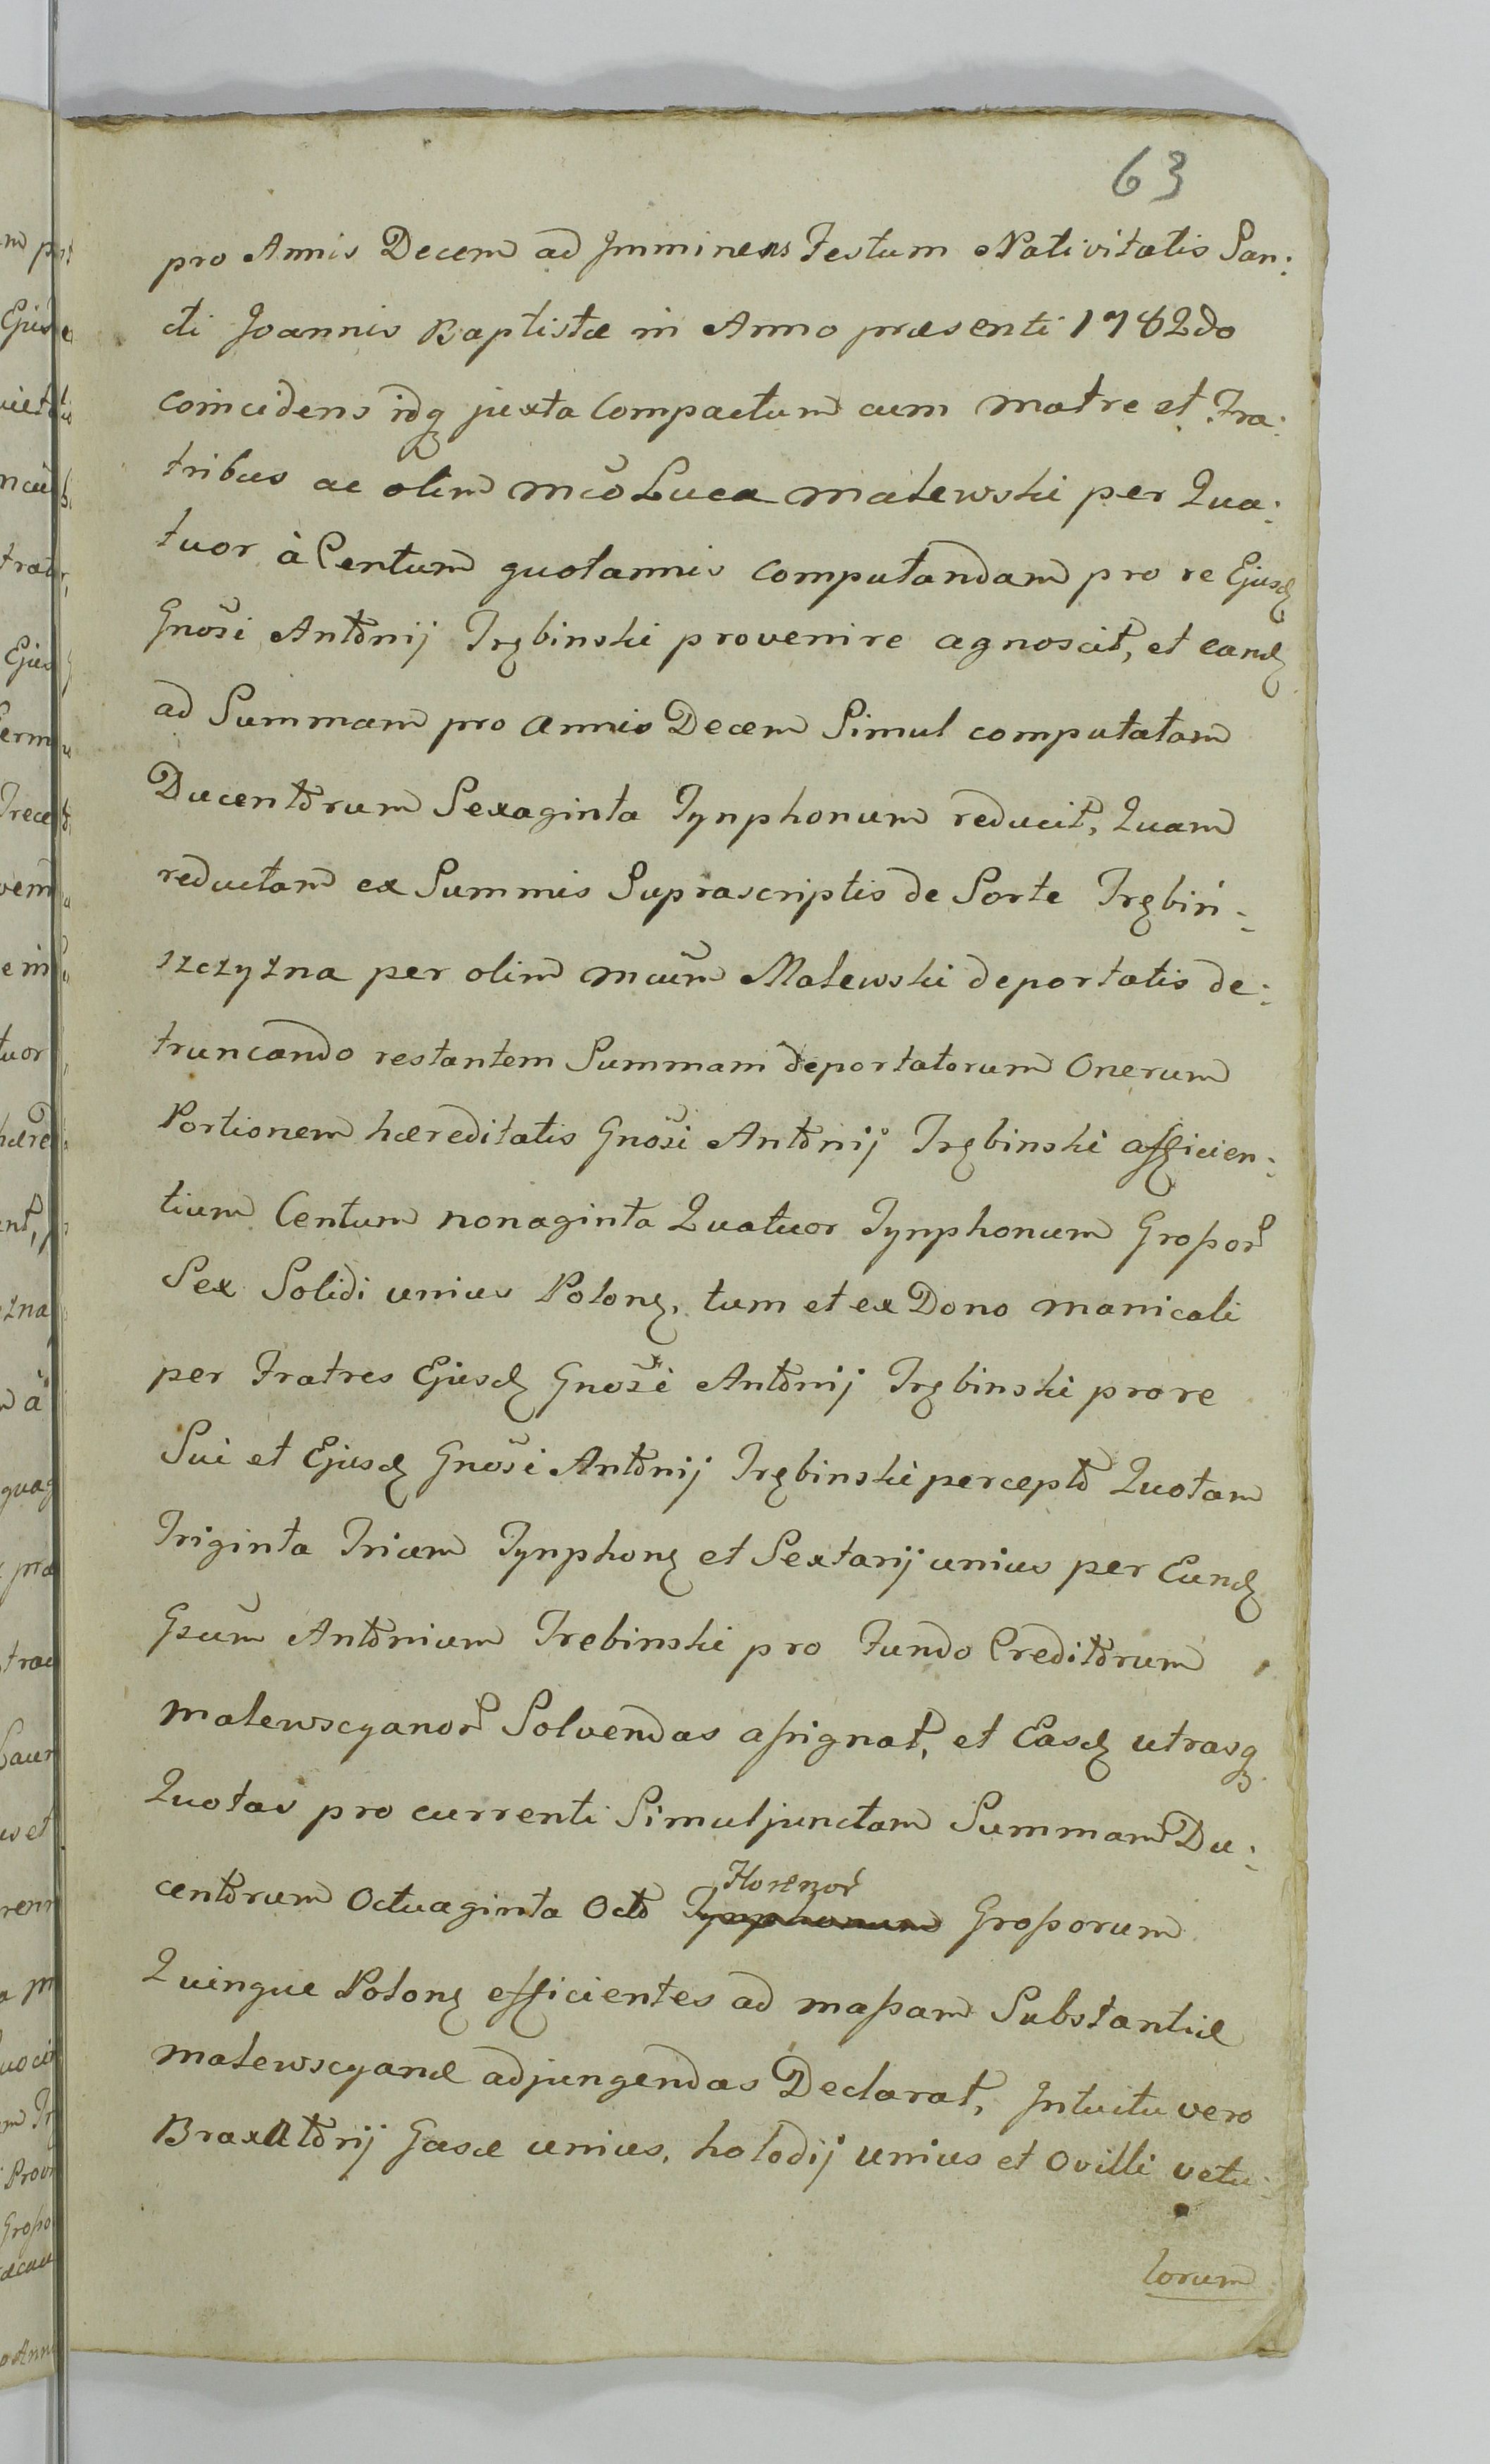 63
pro Annis Decem ad Imminens Festum Nativitatis San:
cti Joannis Baptistæ in Anno præsenti 1782do
coincidens idq juxta Compactum cum Matre et Fra:
tribus ac olim Mco Luca Malewski per Qua:
tuor à Centum quotannis computandam pro re Ejusd
Gnosi Antonij Trębinski provenire agnoscit, et eand
ad Summam pro annis Decem Simul computatam
Ducentorum Sexaginta Tynphonum reducit, Quam
reductam ex Summis Suprascriptis de Sorte Trębiń:
szczyzna per olim Mcum Malewski deportatis de:
truncando restantem Summam deportatorum Onerum
Portionem hæreditatis Gnosi Antonij Trębinski afficien:
tium Centum nonaginta Quatuor Tynphonum Grossor
Sex Solidi unius Polon, tum et ex Dono manicali
per Fratres Ejusd Gnosi Antonij Trębinski pro re
Sui et Ejusd Gnosi Antonij Trębinski percepto Quotam
Triginta Trium Tynphon et Sextarij unius per Eund
Gsum Antonium Trebinski pro Fundo Creditorum
Malewscyanor Solvendas assignat, et Easd utrasq
Quotas pro currenti Simul junctam Summam Du:
centorum Octuaginta Octo Tynphonum Florenor Grossorum
Quinque Polon efficientes ad massam Substantiæ
Malewscyanæ adjungendas Declarat, Intuitu vero
Braxatorij Gasæ unius, holodij unius et Ovilli vetu:
lorum